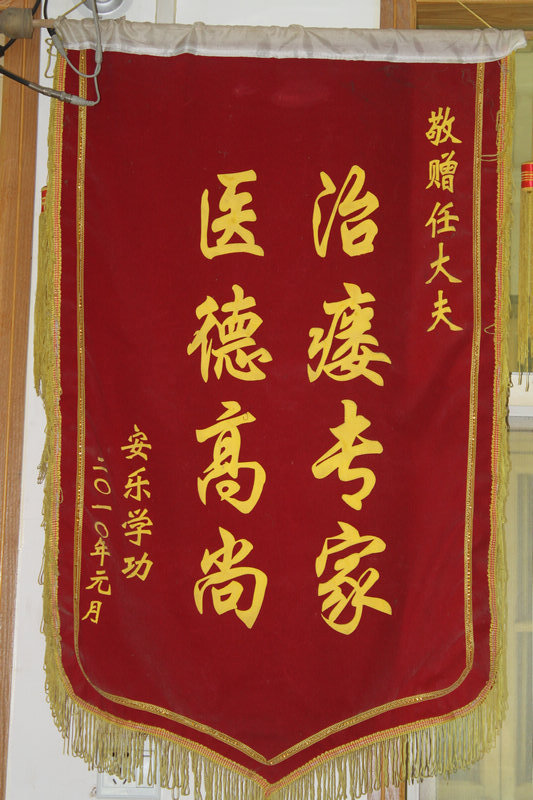 敬赠任大夫
治痿专家
医德高尚
安乐学功
二〇一〇年元月